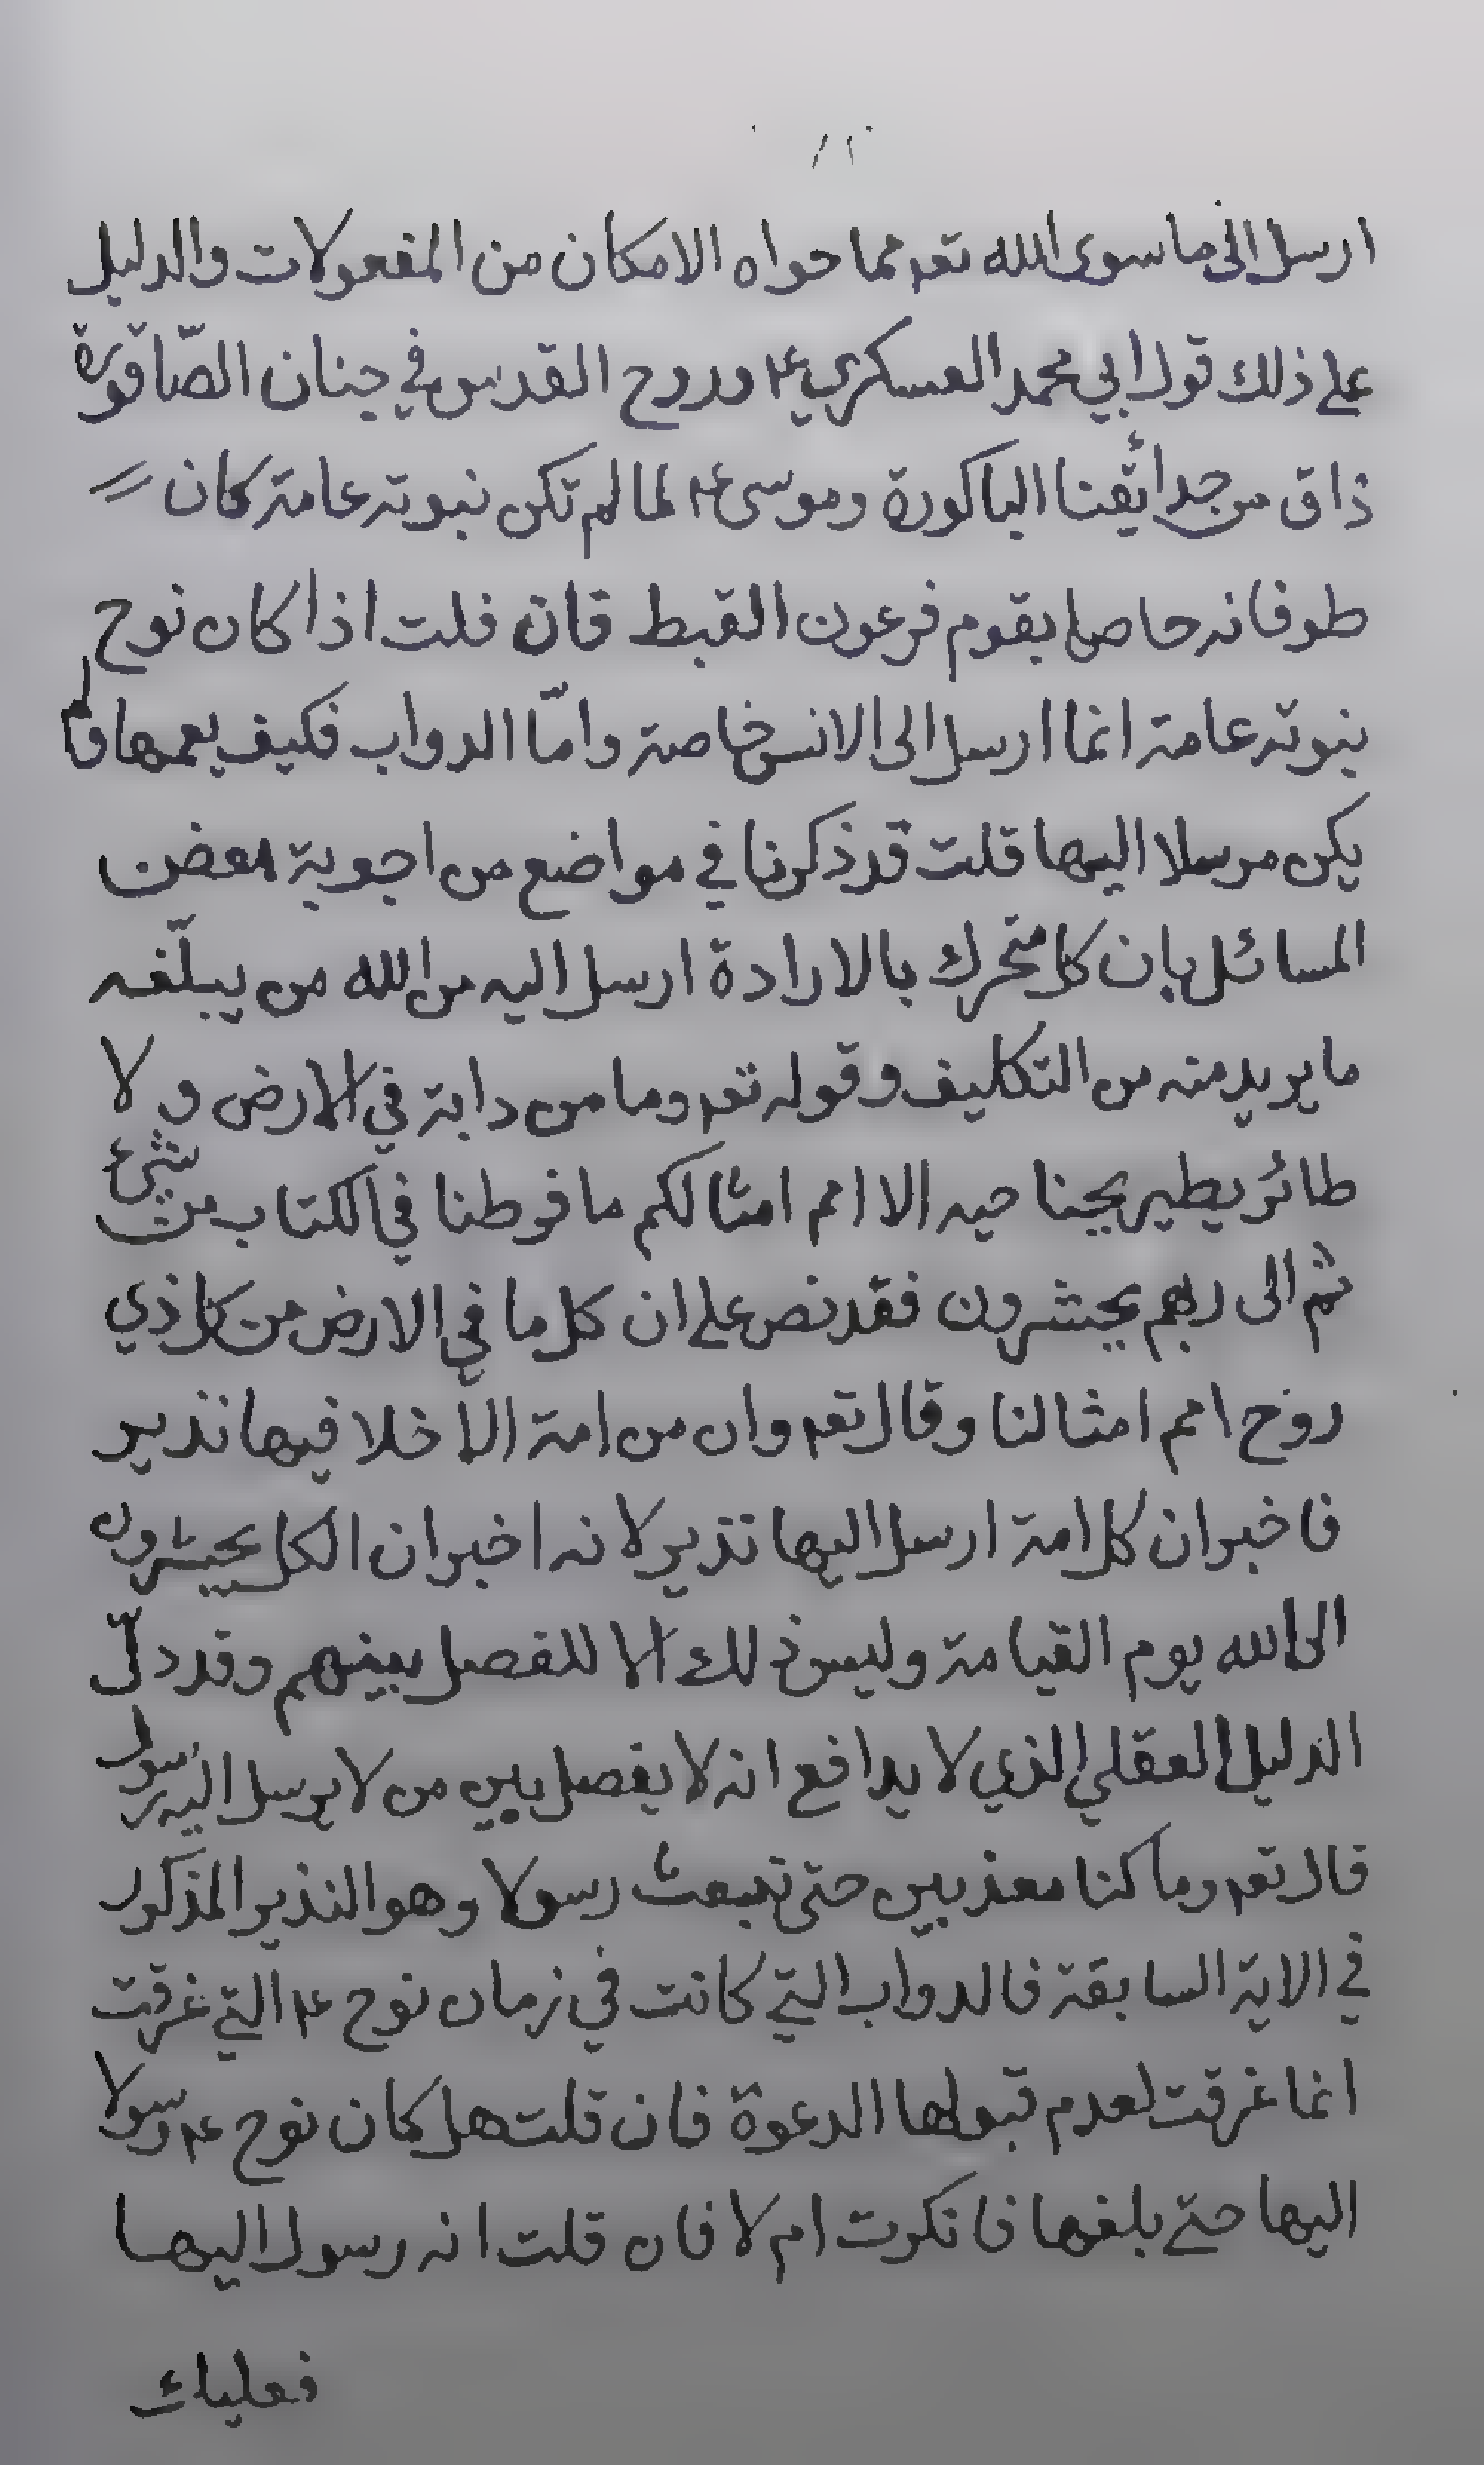 ارسل الى ما سوى الله تعہ مما حواه الامكان من المفعولات والدليل
على ذلك قول ابي محمد العسكري ع۴ وروح القدس في جنان الصّاقورة
ذاق من حدائقنا الباكورة وموسى ع۴ لما لم تكن نبوته عامة كان
طوفانه خاصا بقوم فرعون القبط فان قلت اذا كان نوح
نبوته عامة انما ارسل الى الانس خاصة وامّا الدواب فكيف يعمها ولم
يكن مرسلا اليها قلت قد ذكرنا في مواضع من اجوبة بعض
المسائل بان كل متحرك بالارادة ارسل اليه من الله من يبلّغه
ما يريد منه من التكاليف وقوله تعہ وما من دابة في الارض ولا
طائر يطير بجناحيه الا امم امثالكم ما فرطنا في الكتاب من شيء
ثم الى ربهم يحشرون فقد نص على ان كل ما في الارض من كل ذي
روح امم امثالنا وقال تعہ وان من امة الا خلا فيها نذير
فاخبر ان كل امة ارسل اليها نذير لانه اخبر ان الكل يحشرون
الى الله يوم القيامة وليس ذلك الا للفصل بينهم وقد دلّ
الدليل العقلي الذي لا يدافع انه لا يفصل بين من لا يرسل اليه رسول
قال تعہ وما كنا معذبين حتى نبعث رسولا وهو النذير المذكور
في الاية السابقة فالدواب التي كانت في زمان نوح ع۴ التي غرقت
انما غرقت لعدم قبولها الدعوة فان قلت هل كان نوح ع۴ رسولا
اليها حتى بلغها فانكرت ام لا فان قلت انه رسول اليها
فعليك